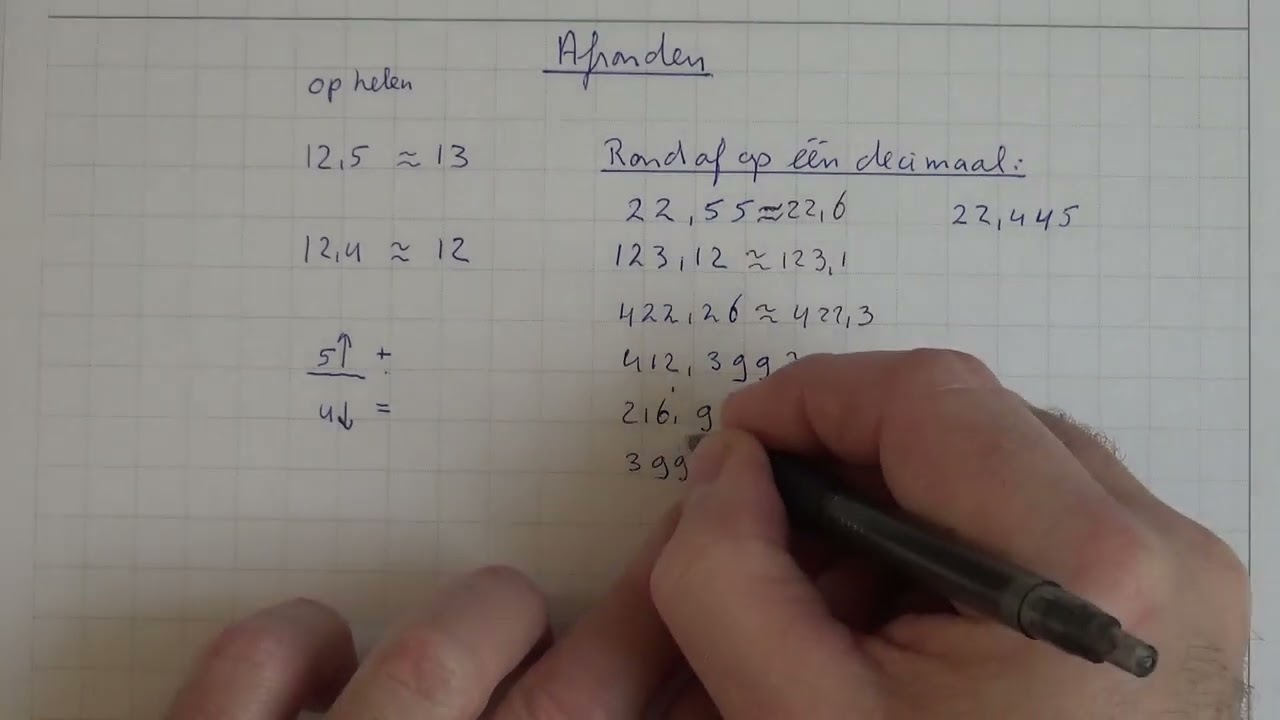 Afronden
op helen
12,5 ≈ 13
12,4 ≈ 12
5↑ +
4↓ =
Rond af op één decimaal:
22,55 ≈ 22,6
22,445
123,12 ≈ 123,1
422,26 ≈ 422,3
412,399
216,9
399